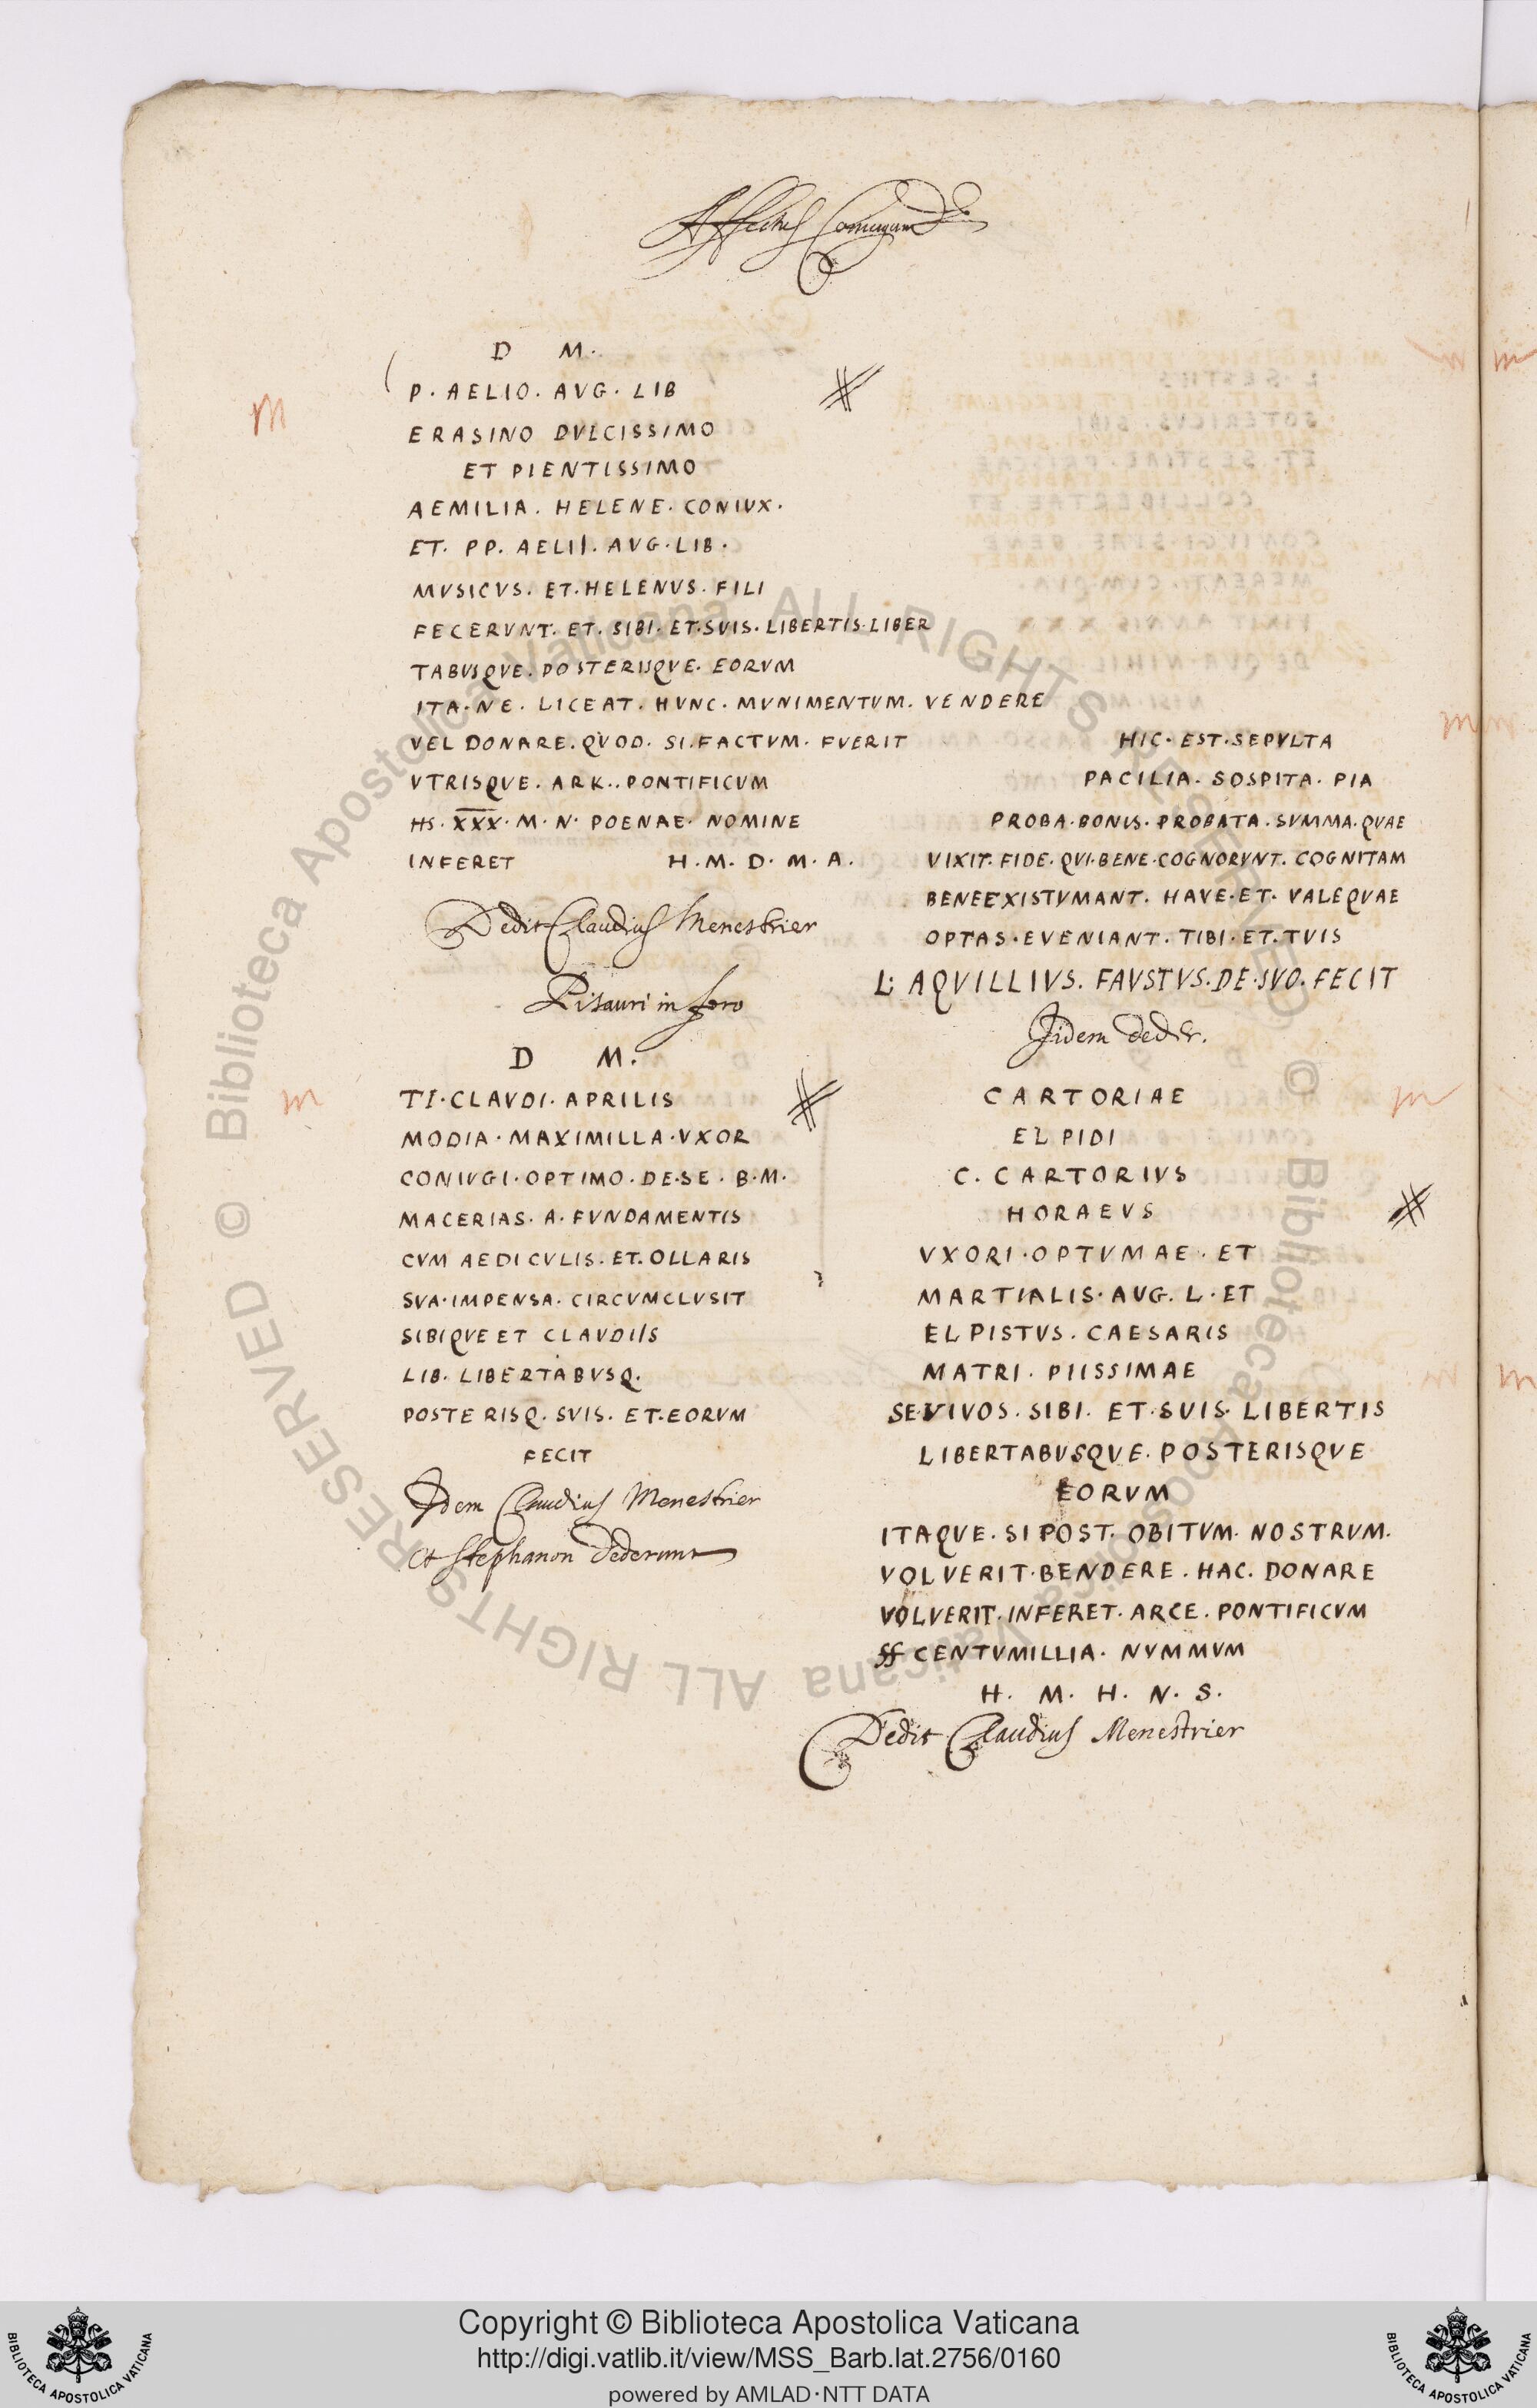 Affectus Coniugum
D M.
P. AELIO. AVG. LIB
ERASINO DVLCISSIMO
ET PIENTISSIMO
AEMILIA. HELENE. CONIVX.
ET. PP. AELII. AVG. LIB.
MVSICVS. ET. HELENVS. FILI
FECERVNT. ET. SIBI. ET. SVIS. LIBERTIS. LIBER
TABVSQVE. POSTERIIQVE. EORVM
ITA. NE. LICEAT. HVNC. MVNIMENTVM. VENDERE
VEL DONARE. QVOD. SI. FACTVM. FVERIT
VTRISQVE. ARK.. PONTIFICVM
HS. X̅X̅X̅. M. N. POENAE. NOMINE
INFERET H. M. D. M. A.
Dedit Claudius Menestrier
Pisauri in foro
D M.
TI. CLAVDI. APRILIS
MODIA. MAXIMILLA. VXOR
CONIVGI. OPTIMO. DE. SE. B. M.
MACERIAS. A. FVNDAMENTIS
CVM AEDICVLIS. ET. OLLARIS
SVA. IMPENSA. CIRCVMCLVSIT
SIBIQVE ET CLAVDIIS
LIB. LIBERTABVSQ.
POSTERISQ. SVIS. ET. EORVM
FECIT
Idem Claudius Menestrier
et Stephanon dederunt
HIC. EST. SEPVLTA
PACILIA. SOSPITA. PIA
PROBA. BONIS. PROBATA. SVMMA. QVAE
VIXIT. FIDE. QVI. BENE. COGNORVNT. COGNITAM
BENEEXISTVMANT. HAVE. ET. VALEQVAE
OPTAS. EVENIANT. TIBI. ET. TVIS
L. AQVILLIVS. FAVSTVS. DE. SVO. FECIT
Iidem deder.
CARTORIAE
ELPIDI
C. CARTORIVS
HORAEVS
VXORI. OPTVMAE. ET
MARTIALIS. AUG. L. ET
ELPISTVS. CAESARIS
MATRI. PIISSIMAE
SE. VIVOS. SIBI. ET. SUIS. LIBERTIS
LIBERTABVSQVE. POSTERISQVE
EORVM
ITAQVE. SI POST. OBITVM. NOSTRVM.
VOLVERIT. BENDERE. HAC. DONARE
VOLVERIT. INFERET. ARCE. PONTIFICVM
SS CENTVMILLIA. NVMMVM
H. M. H. N. S.
Dedit Claudius Menestrier
Copyright © Biblioteca Apostolica Vaticana
http://digi.vatlib.it/view/MSS_Barb.lat.2756/0160
powered by AMLAD·NTT DATA